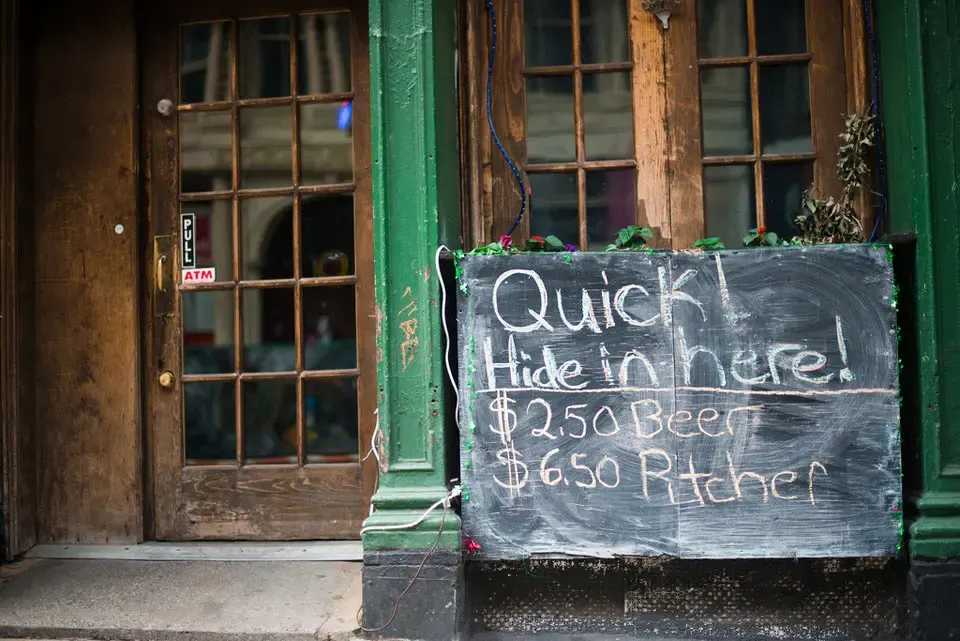 PULL
ATM
Quick!
Hide in here!
$2.50 Beer
$6.50 Pitcher